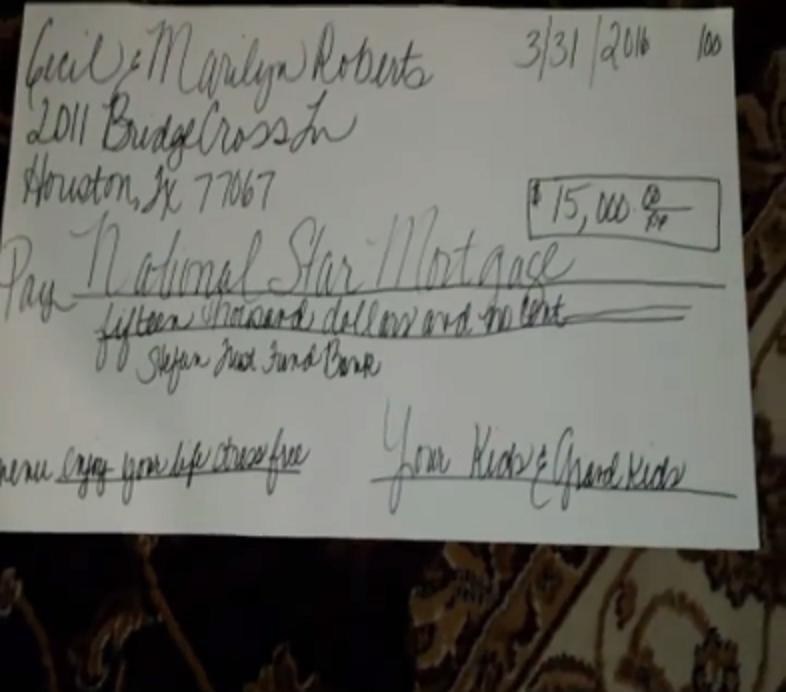 Cecil & Marilyn Roberts 3/31/2016 100
2011 BridgeCross Ln
Houston, Tx 77067
$ 15,000.
Pay National Star Mortgage
fifteen thousand dollars and no cent
Stefan Trust Fund Bank
enjoy your life stress free Your Kids & Grand Kids